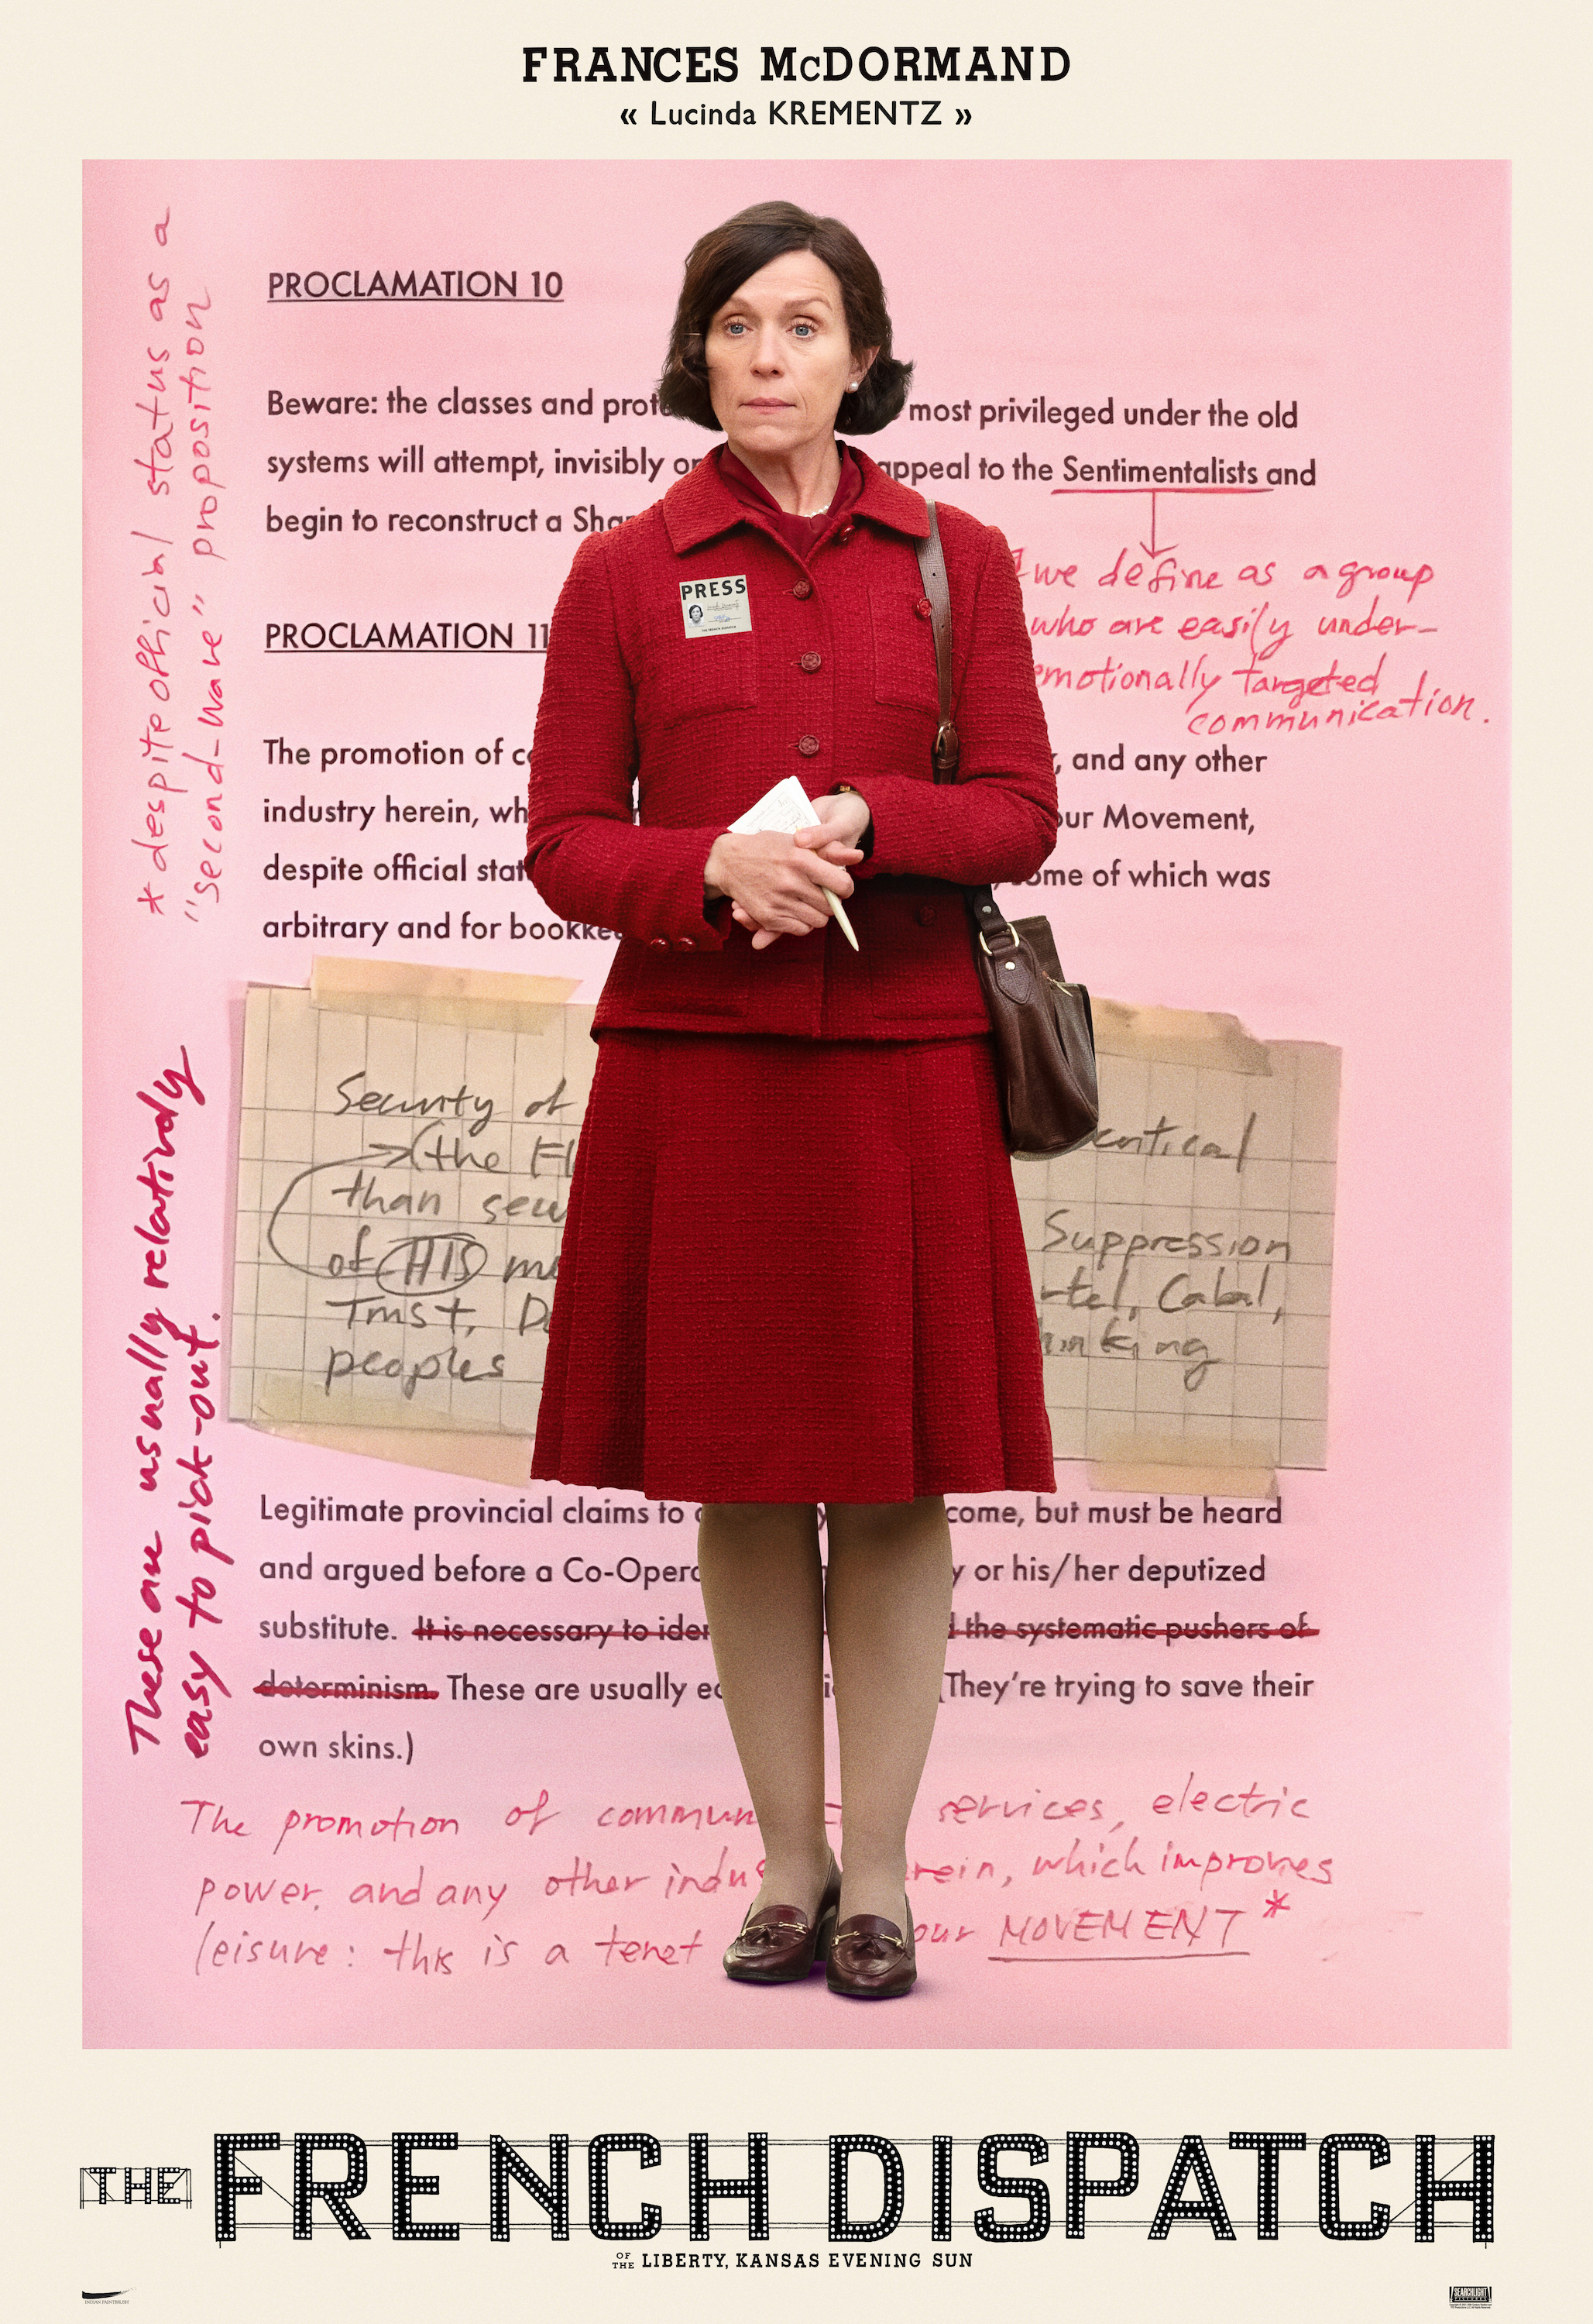 FRANCES McDORMAND
« Lucinda KREMENTZ »
* despite official status as a
"second-wave" proposition
PROCLAMATION 10
Beware: the classes and most privileged under the old
systems will attempt, invisibly or appeal to the Sentimentalists and
begin to reconstruct a
we define as a group
who are easily under-
emotionally targeted
communication.
PRESS
PROCLAMATION 11
The promotion of and any other
industry herein, our Movement,
despite official some of which was
arbitrary and for
Security of critical
(the
than Suppression
of HIS Cabal,
Tmst,
peoples
These are usually relatively
easy to pick-out.
Legitimate provincial claims to come, but must be heard
and argued before a or his/her deputized
substitute. It is necessary to the systematic pushers of
determinism. These are usually (They're trying to save their
own skins.)
The promotion of services, electric
power, and any other which improves
leisure: this is a tenet our MOVEMENT*
THE FRENCH DISPATCH
OF THE LIBERTY, KANSAS EVENING SUN
INDIAN PAINTBRUSH
SEARCHLIGHT